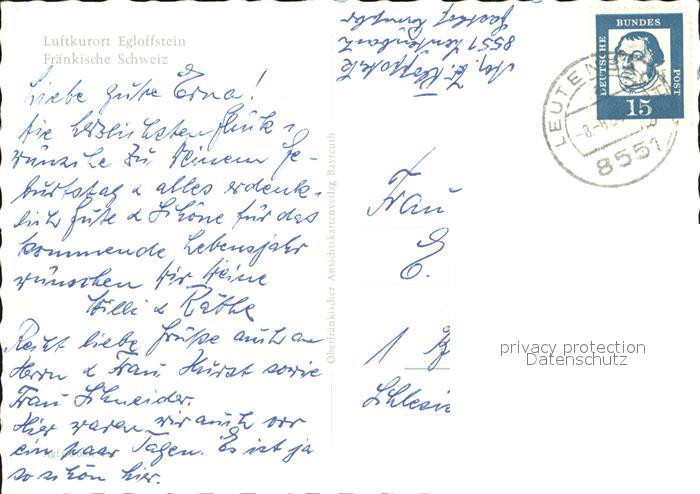 Luftkurort Egloffstein
Fränkische Schweiz
Liebe gute Erna!
Die herzlichsten Glück-
wünsche zu Deinem Ge-
burtstag & alles erdenk-
lich Gute & Schöne für das
kommende Lebensjahr
wünschen Dir Deine
Willi & Käthe
Recht liebe Grüße auch an
Herrn & Frau Hurst sowie
Frau Schneider.
Hier waren wir auch vor
ein paar Tagen. Es ist ja
so schön hier.
Oberfränkischer Ansichtskartenverlag Bayreuth
8551
DEUTSCHE BUNDES POST
15
LEUTEN
8551
Frau
E.
1 B
Schlesi
privacy protection
Datenschutz